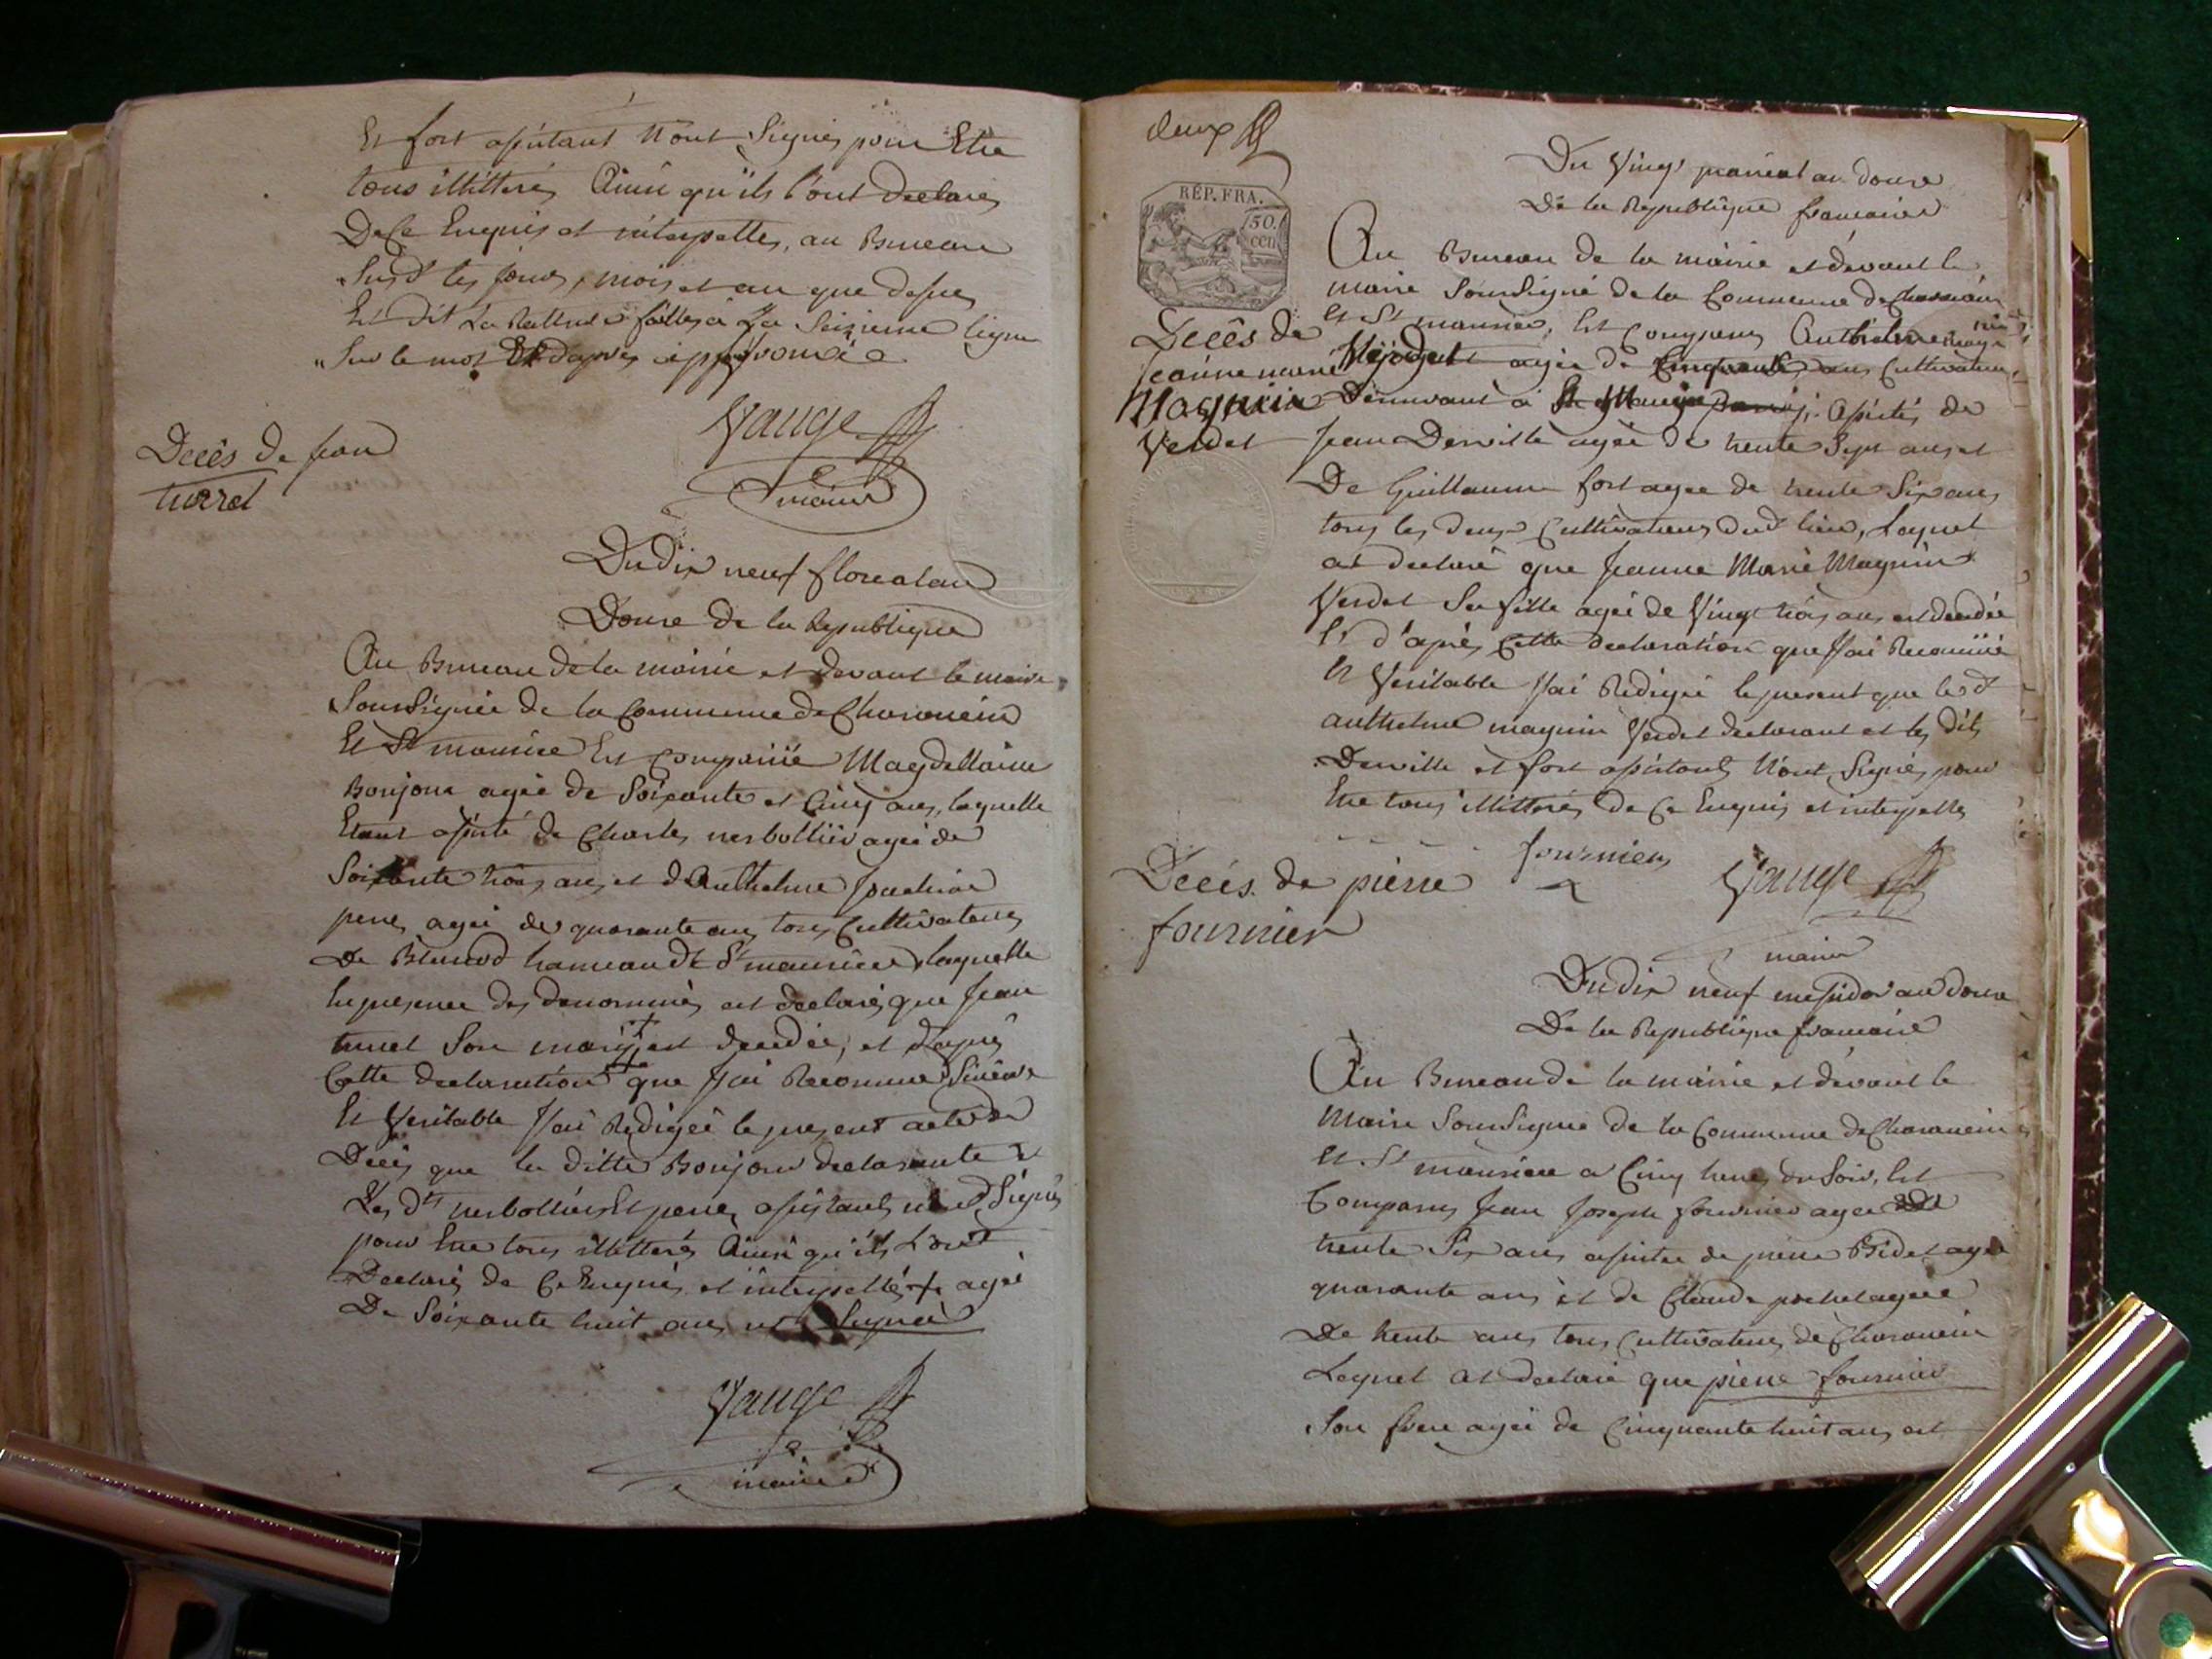 Et fort assistant N'ont Signés pour Etre
tous illitterés Ainsi qu'ils l'ont Declarés
De Ce Enquis et interpellés, au Bureau
Susd. les jours, mois et an que dessus
Et Dit La Rature faitte à La Seizieme ligne
Sur le mot approuvée
Vauge
maire
Decès de jean
turrel
Du dix neuf floreal an
Douze de la Republique
Au Bureau de la mairie et devant le maire
Soussignée de la Commune de Charancin
Et St maurice Est Comparüe Magdellaine
Bonjour agée de Soixante et Cinq ans, laquelle
Etant assisté de Charles nerbollier agée de
Soixante trois ans et d'Anthelme
agée de quarante ans tous Cultivateurs
De hameau de St maurice, laquelle
En presence des denommés at declaré que Jean
turrel Son mary est decedée, et d'après
Cette declaration que J'ai Reconnue Sincere
Et Veritable J'ai Redigée le present acte de
Decès que la ditte Bonjour declarante et
Les dts nerbollier Et assistants n'ont Signés
pour Etre tous illitterés Ainsi qu'ils L'ont
Declarés de Ce Enquis et interpellés agée
De Soixante huit ans
Vauge
maire
deux
RÉP. FRA.
50.
cen
Du Vingt prairial an douze
De la Republique francaise
Au Bureau de la mairie et dévant le
maire Soussigné de la Commune de Charancin
Et St maurice, Est Comparus Anthelme
Decès de
jeanne marie
Magnin
Verdet
agée de Cinquante ans Cultivateur
Demeurant à Assistés de
Jean Derville agée de trente Sept ans et
De Guillaume fort agée de trente Six ans
tous les deux Cultivateurs dud. lieu, Lequel
at declaré que Jeanne Marie Magnin
Verdet Sa fille agée de Vingt trois ans est decedée
Et d'après Cette declaration que J'ai Reconnüe
Et Veritable J'ai Redigée le present que led.
anthelme magnin Verdet declarant et les dits
Derville et fort assistants N'ont Signés pour
Etre tous illitterés de Ce Enquis et interpellés
fournier
Vauge
maire
Decès de pierre
fournier
Du dix neuf messidor an douze
De la Republique francaise
Au Bureau de la mairie et dévant le
Maire Soussigné de la Commune de Charancin
Et St maurice a Cinq heures du Soir, Est
Comparus Jean Joseph fournier agée de
trente Six ans assistée de pierre Bidet agée
quarante ans et de Claude pochet agée
De trente ans tous Cultivateurs de Charancin
Lequel at declaré que pierre fournier
Son frere agée de Cinquante huit ans est